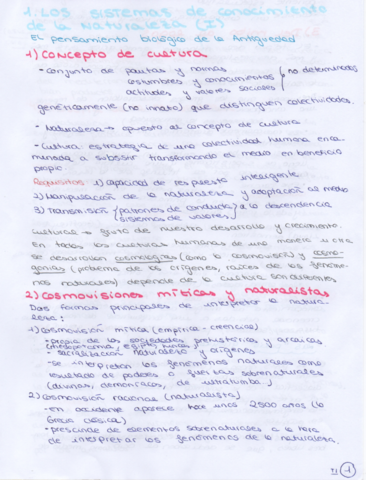 1. LOS SISTEMAS DE CONOCIMIENTO
DE LA NATURALEZA (I)
EL pensamiento biológico de la Antigüedad
1) CONCEPTO DE CULTURA
- conjunto de pautas y normas
costumbres y conocimientos
actitudes y valores sociales
no determinados
genéticamente (no innato) que distinguen colectividades.
- Naturaleza → opuesto al concepto de cultura
- Cultura estrategia de una colectividad humana enca-
minada a subsistir transformando el medio en beneficio
propio.
Requisitos 1) capacidad de respuesta inteligente
2) Manipulación de la naturaleza y adaptación al medio
3) Transmisión (patrones de conducta) a la descendencia
sistemas de valores
Culturas → fruto de nuestro desarrollo y crecimiento.
En todas las culturas humanas de una manera u otra
se desarrollan cosmologías (como la cosmovisión) y cosmo-
gonías (problema de los orígenes, raíces de los fenóme-
nos naturales) depende de la cultura son diferentes
2) COSMOVISIONES MÍTICAS Y NATURALISTAS
Dos formas principales de interpretar la natura-
leza:
1) cosmovisión mítica (empírica - creencias)
- propia de las sociedades prehistóricas y arcaicas
- sacralización naturaleza y orígenes
- se interpretan los fenómenos naturales como
resultado de poderes o fuerzas sobrenaturales
(divinas, demoníacas, de ultratumba)
2) cosmovisión racional (naturalista)
- en occidente aparece hace unos 2500 años (la
Grecia clásica)
- prescinde de elementos sobrenaturales a la hora
de interpretar los fenómenos de la naturaleza.